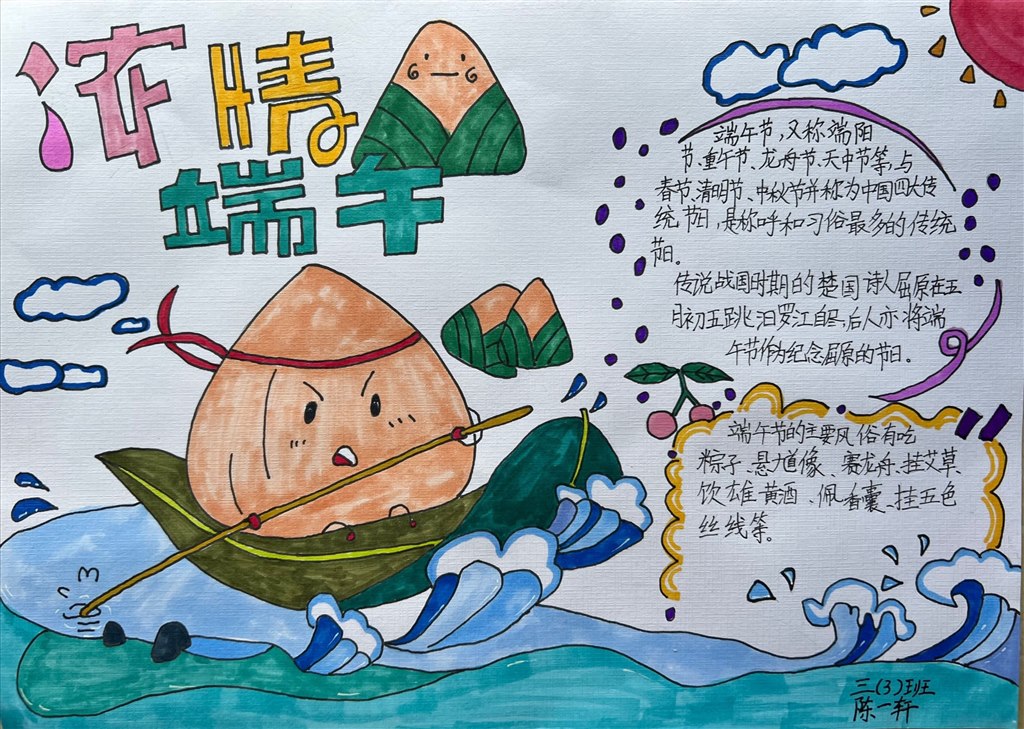 浓情
端午
端午节,又称端阳
节、重午节、龙舟节、天中节等,与
春节、清明节、中秋节并称为中国四大传
统节日,是称呼和习俗最多的传统
节日。
传说战国时期的楚国诗人屈原在五
月初五跳汨罗江自尽,后人亦将端
午节作为纪念屈原的节日。
端午节的主要风俗有吃
粽子、悬九道像、赛龙舟、挂艾草、
饮雄黄酒、佩香囊、挂五色
丝线等。
三(3)班
陈一轩